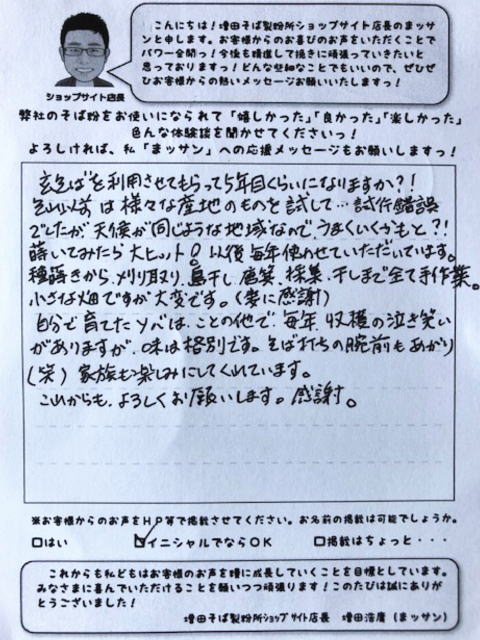 こんにちは！増田そば製粉所ショップサイト店長のマッサ
ンと申します。お客様からのお喜びのお声をいただくことで
パワー全開っ！今後も精進して挽きに頑張っていきたいと
思っておりますっ！どんな些細なことでもいいので、ぜひぜ
ひお客様からの熱いメッセージお願いいたしますっ！
ショップサイト店長
弊社のそば粉をお使いになられて「嬉しかった」「良かった」「楽しかった」
色んな体験談を聞かせてくださいっ！
よろしければ、私「まッサン」への応援メッセージもお願いしますっ！
玄そばを利用させてもらって5年目くらいになりますか？！
それ以前は様々な産地のものを試して…試行錯誤
でしたが天候が同じような地域なので、うまくいくかもと？！
蒔いてみたら大ヒット！以後毎年使わせていただいています。
種蒔きから、刈り取り、島干し、唐箕、採集、干しまで全て手作業。
小さな畑ですが大変です。(妻に感謝)
自分で育てたソバは、ことの他で、毎年、収穫の泣き笑い
がありますが、味は格別です。そば打ちの腕前もあがり
(笑) 家族も楽しみにしてくれています。
これからも、よろしくお願いします。感謝。
※お客様からのお声をHP等で掲載させてください。お名前の掲載は可能でしょうか。
□はい ☑イニシャルでならOK □掲載はちょっと・・・
これからも私どもはお客様のお声を糧に成長していくことを目標としています。
みなさまに喜んでいただけることを願いつつ頑張ります！このたびは誠にありが
とうございました！
増田そば製粉所ショップサイト店長 増田浩庸(まッサン)